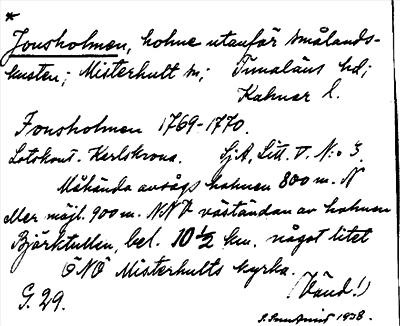 *
Jonsholmen, holme utanför Smålands-
kusten; Misterhult sn; Tunaläns hd;
Kalmar l.
Jonsholmen 1769-1770.
Lotskont. Karlskrona. Sj.A, Litt. V. N:o 3.
Måhända avsågs holmen 800 m. N
eller möjl. 900 m. NNV väständan av holmen
Björktullen, bel. 10 ½ km. något litet
ÖNÖ Misterhults kyrka.
G. 29. (Vänd!)
1938.